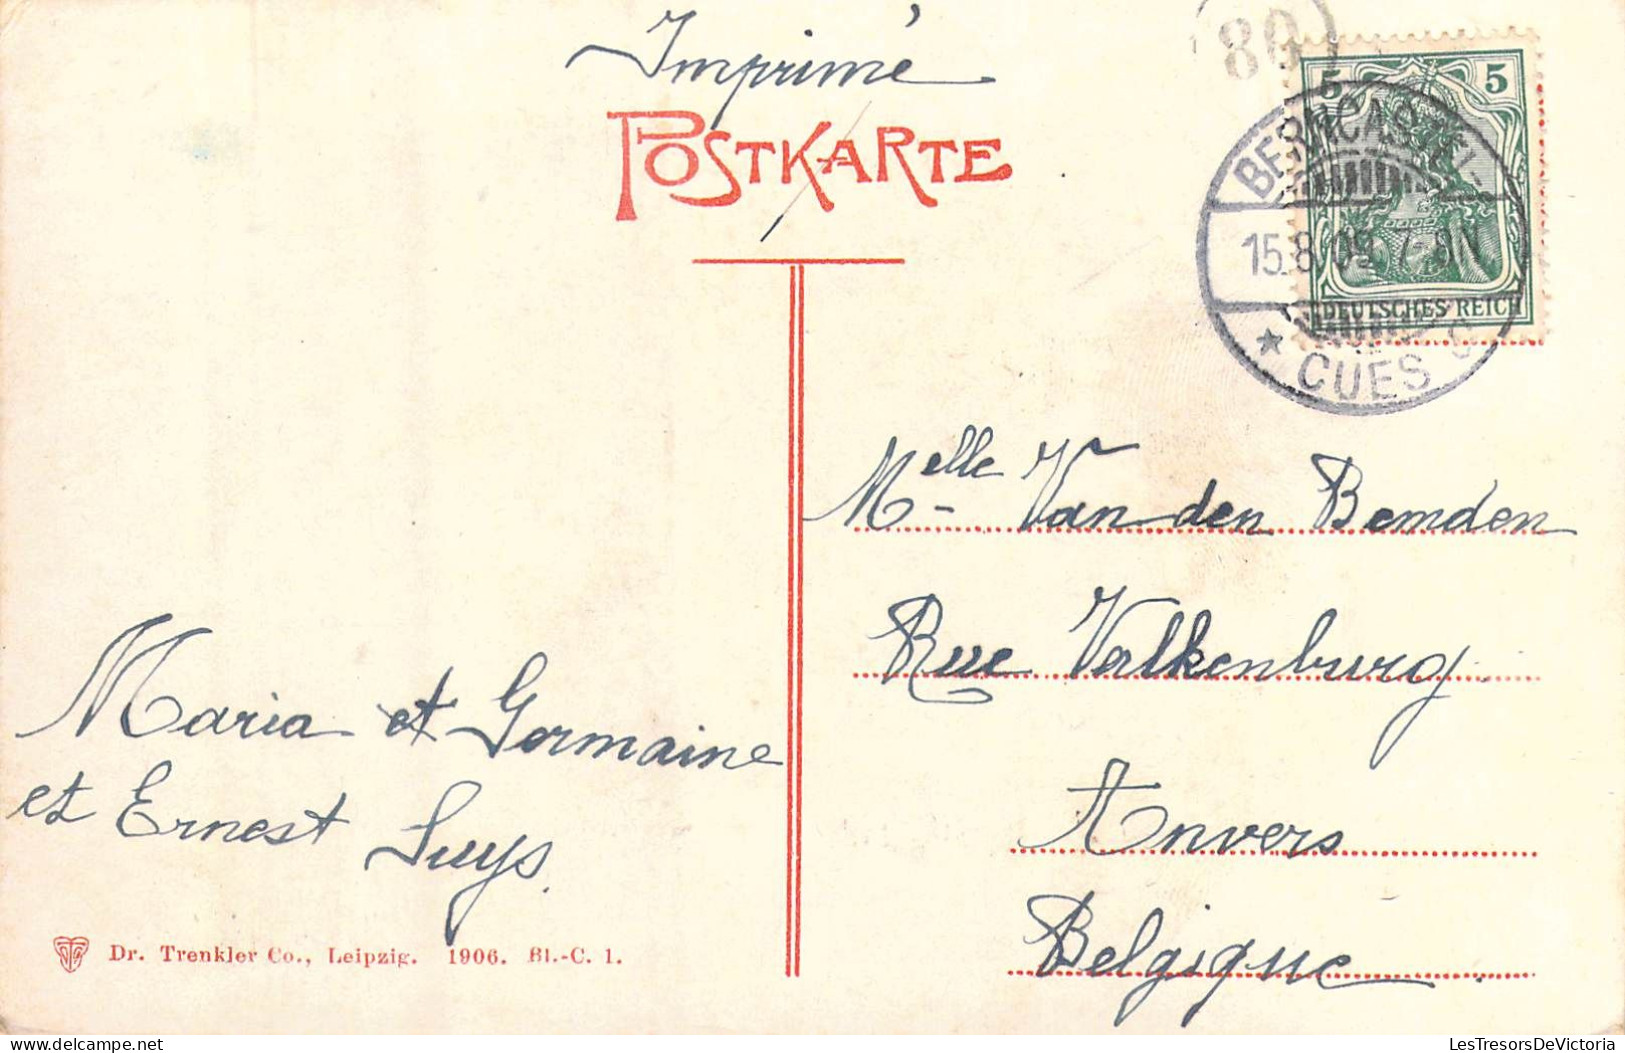 Imprimé
POSTKARTE
80
5 5
DEUTSCHES REICH
BERNCASTEL-
15.8.09. 7-8N
★ CUES c
Melle Van den Bemden
Rue Valkenburg
Anvers
Belgique
Maria et Germaine
et Ernest Suys.
Dr. Trenkler Co., Leipzig. 1906. Bl.-C. 1.
LesTresorsDeVictoria